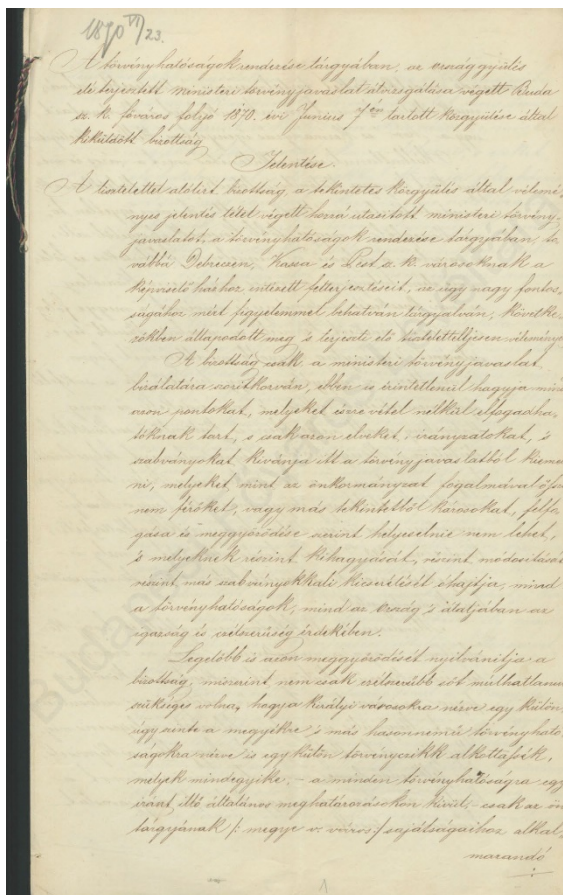 1870 VI/23.
A törvényhatóságok rendezése tárgyában, az országgyülés
elé terjesztett ministeri törvényjavaslat átvizsgálása végett Buda
sz. k. főváros folyó 1870. évi Junius 7én tartott közgyülése által
kiküldött bizottság
Jelentése.
A tisztelettel alólirt bizottság a tekintetes közgyülés által vélemé-
nyes jelentés tétel végett hozzá utasitott ministeri törvény-
javaslatot, a törvényhatóságok rendezése tárgyában, to-
vábbá Debreczen, Kassa és Pest sz. k. városoknak a
képviselő házhoz intézett felterjesztéseit, az ügy nagy fontos-
ságához mért figyelemmel behatván tárgyalván, követke-
zőkben állapodott meg s terjeszti elő tiszteletteljesen véleményét
A bizottság csak a ministeri törvényjavaslat
birálatára szoritkozván, ebben is érintetlenül hagyja mind
azon pontokat, melyeket észre vétel nélkül elfogadha-
tóknak tart, s csak azon elveket, irányzatokat, és
szabványokat kivánja itt a törvényjavaslatból kiemel-
ni, melyeket mint az önkormányzat fogalmával össze
nem férőket, vagy más tekintetből károsokat, felfo-
gása és meggyőződése szerint helyeselnie nem lehet,
s melyeknek részint kihagyását, részint módositását
részint más szabványokkali kicserélését óhajtja, mind
a törvényhatóságok, mind az ország s átaljában az
igazság és czélszerüség érdekében.
Legelőbb is azon meggyőződését nyilvánitja a
bizottság, miszerint nem csak czélszerübb sőt mulhatlanul
szükséges volna, hogy a királyi városokra nézve egy külön,
ugy szinte a megyékre s más hasonnemü törvényható-
ságokra nézve is egy külön törvényczikk alkottassék,
melyek mindegyike, – a minden törvényhatóságra egy
iránt illő általános meghatározásokon kivül, – csak az ön
tárgyának /: megye v. város :/ sajátságaihoz alkal-
mazandó
1